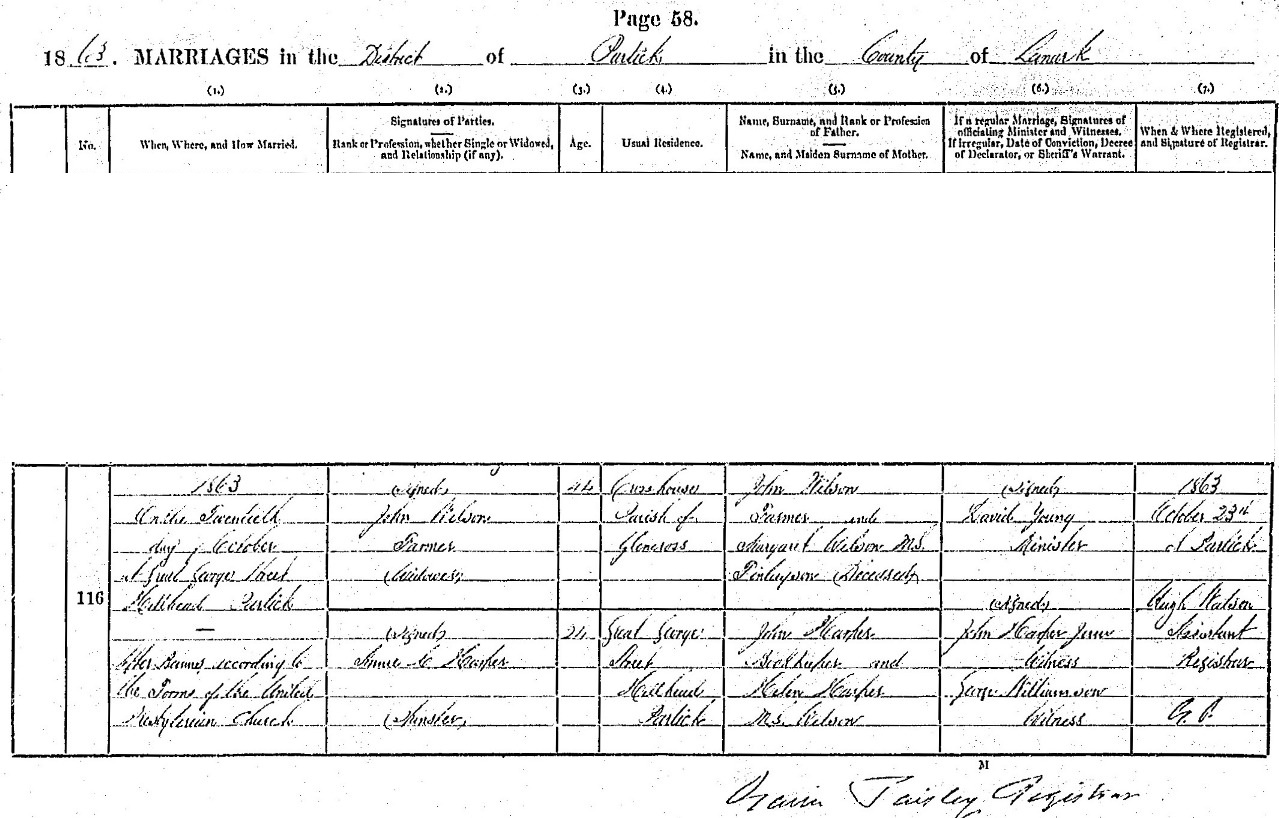 Page 58.
1863. MARRIAGES in the District of Partick in the County of Lanark
(1.) (2.) (3.) (4.) (5.) (6.) (7.)
No.
When, Where, and How Married.
Signatures of Parties.
Rank or Profession, whether Single or Widowed,
and Relationship (if any).
Age.
Usual Residence.
Name, Surname, and Rank or Profession
of Father.
Name, and Maiden Surname of Mother.
If a regular Marriage, Signatures of
officiating Minister and Witnesses.
If Irregular, Date of Conviction, Decree
of Declarator, or Sheriff's Warrant.
When & Where Registered,
and Signature of Registrar.
116
1863
On the Twentieth
day of October
at Great George Street
Hillhead Partick
—
After Banns according to
the Forms of the United
Presbyterian Church
(Signed)
John Wilson
Farmer
(Widower)
(Signed)
Harper
(Spinster)
44
24
Parish of
Glencross
Great George
Street
Hillhead
Partick
John Wilson
Farmer and
Margaret Wilson M.S.
Finlayson (Deceased)
John Harper
Bookkeeper and
Helen Harper
M.S. Wilson
(Signed)
David Young
Minister
(Signed)
John Harper Junr
Witness
George Williamson
Witness
1863
October 23rd
at Partick
Hugh Watson
Assistant
Registrar
M
Paisley Registrar